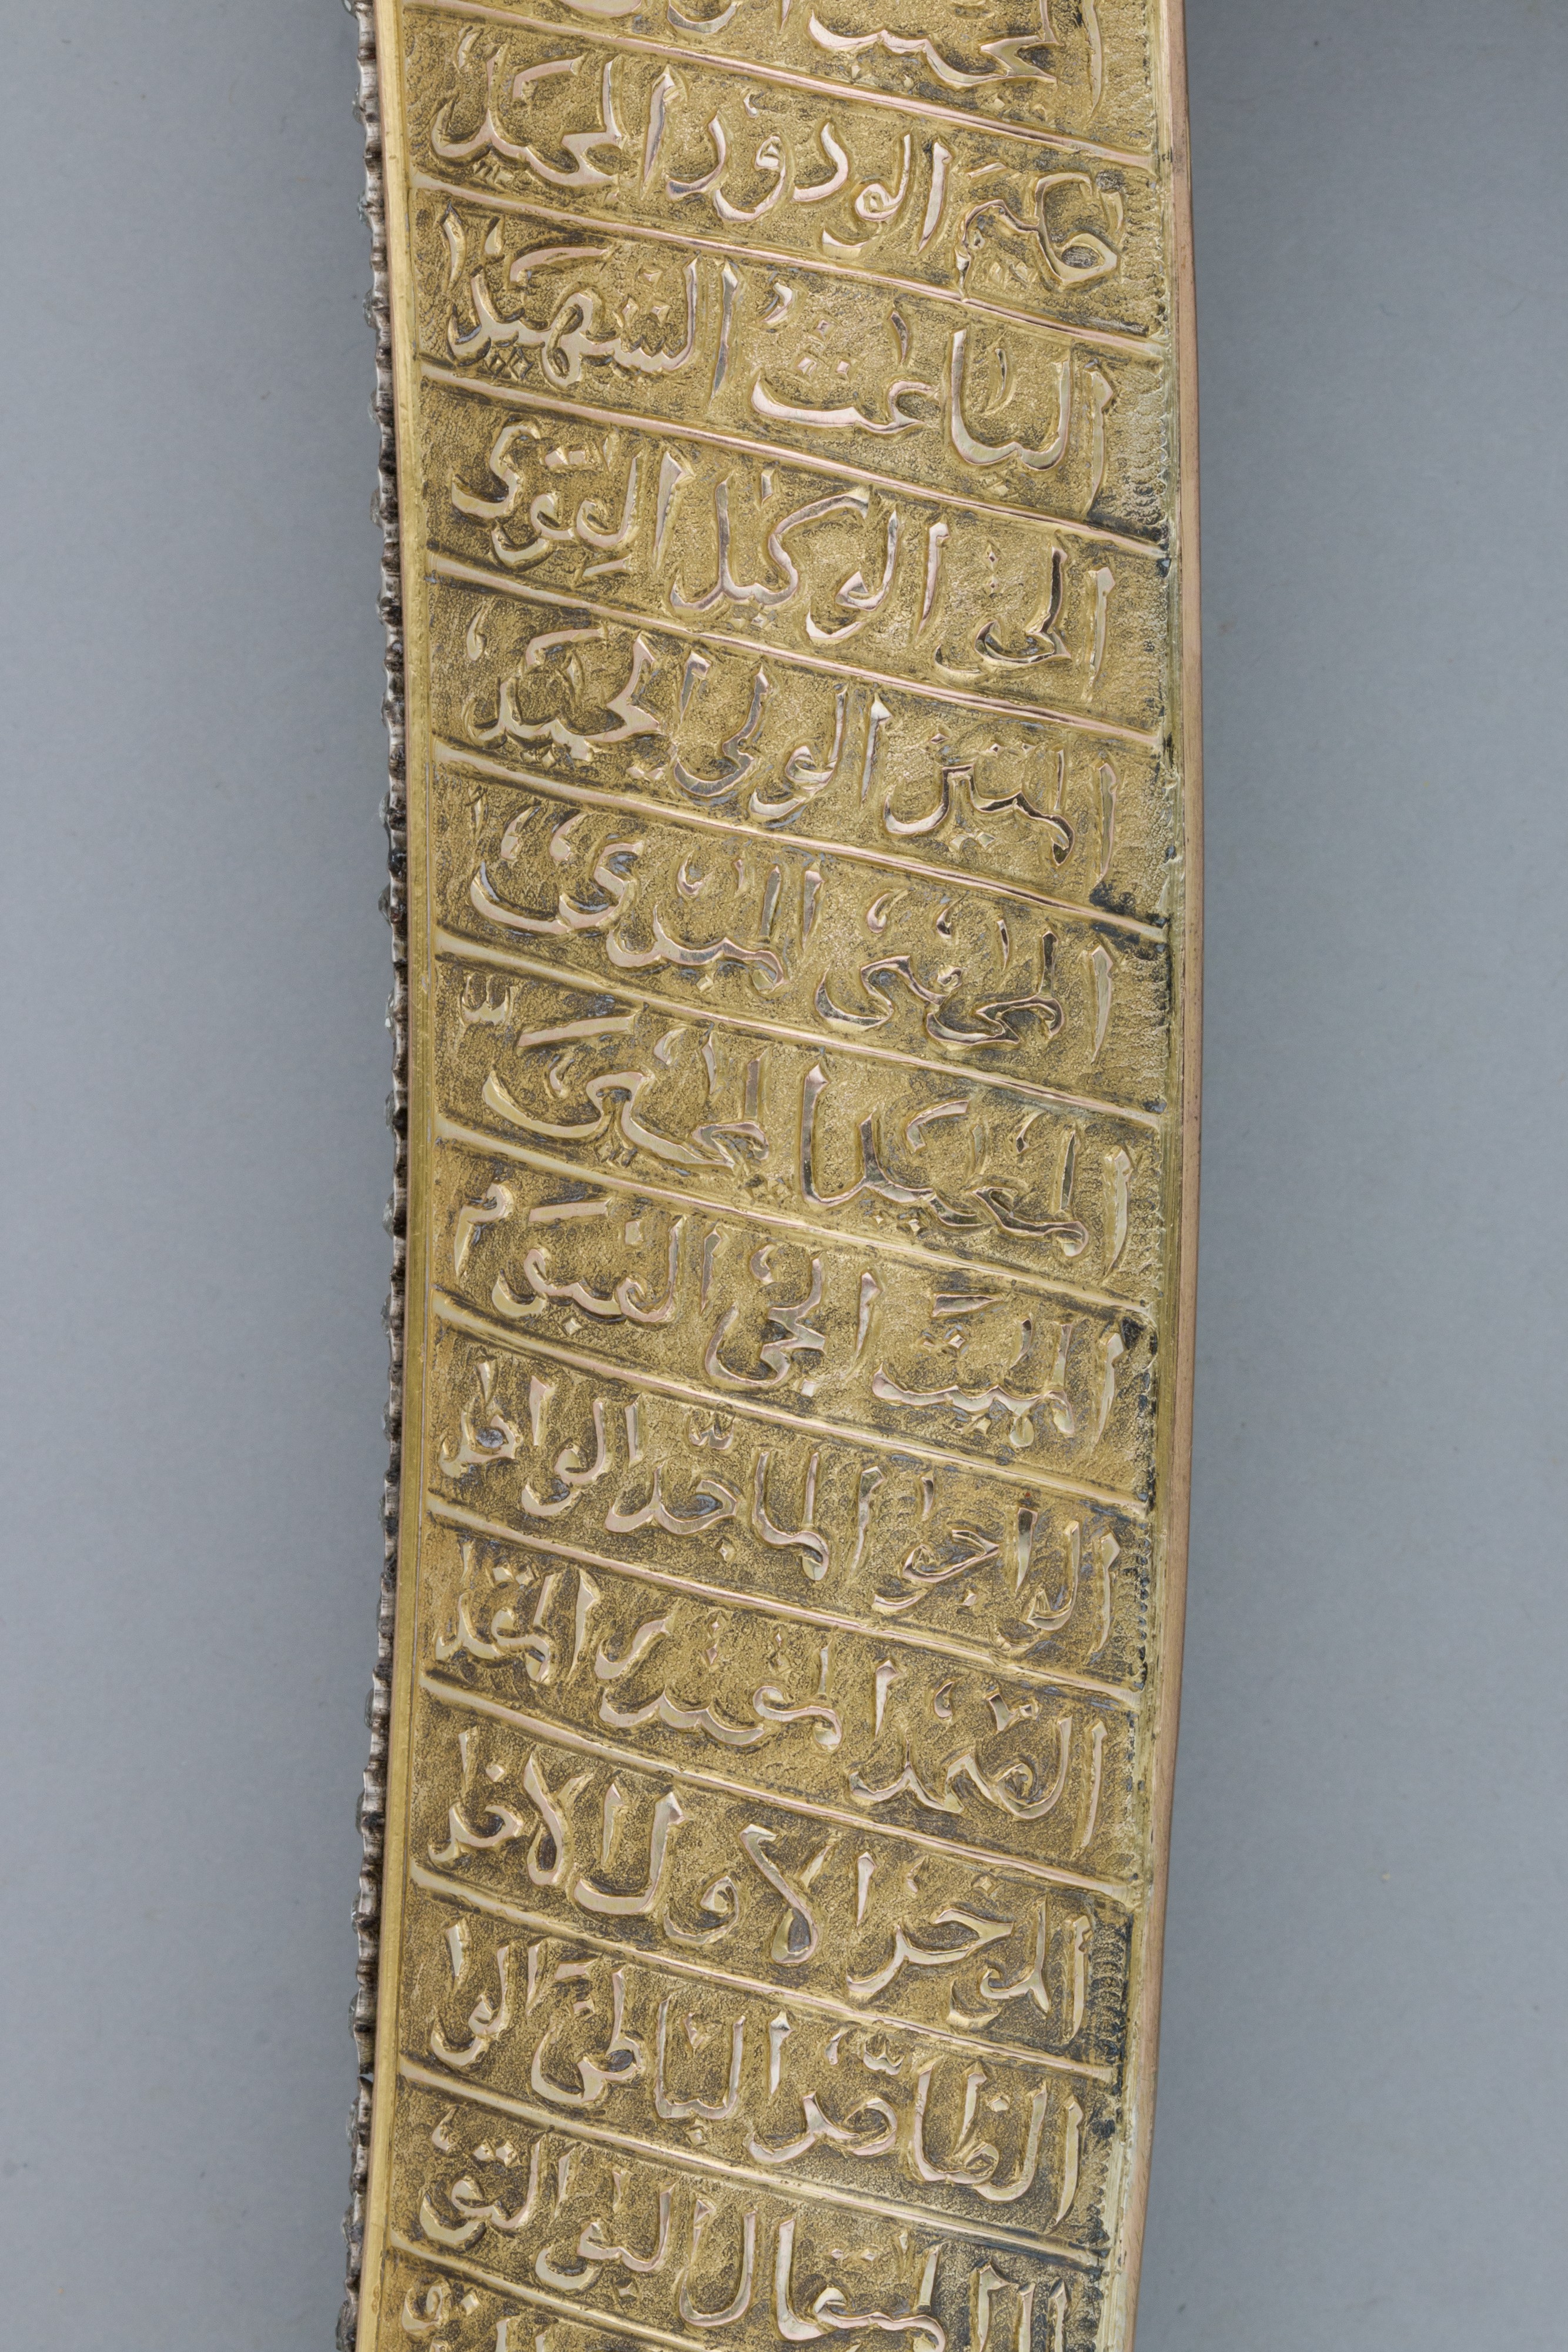 كيم الودود المجيد
الباعث الشهيد ا
الحق الوكيل القوى
المتين الولى الحميد
المحصى المبدئ
المعيد المحيى
المميت الحى القيوم
الواجد الماجد الواحد
الصمد ا لمقتدر المقد
المؤخر الاول الاخر
الظاهر الباطن الوا
المتعال البر التو